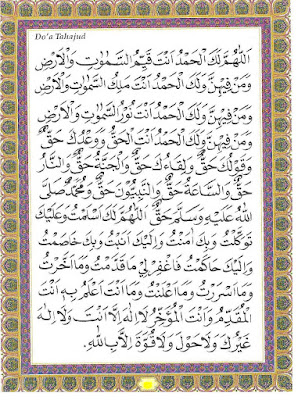 Do'a Tahajud
اَللّٰهُمَّ لَكَ الْحَمْدُ اَنْتَ قَيِّمُ السَّمٰوٰتِ وَالْاَرْضِ
وَمَنْ فِيْهِنَّ وَلَكَ الْحَمْدُ اَنْتَ مَلِكُ السَّمٰوٰتِ وَالْاَرْضِ
وَمَنْ فِيْهِنَّ وَلَكَ الْحَمْدُ اَنْتَ نُوْرُ السَّمٰوٰتِ وَالْاَرْضِ
وَمَنْ فِيْهِنَّ وَلَكَ الْحَمْدُ اَنْتَ الْحَقُّ وَوَعْدُكَ حَقٌّ
وَقَوْلُكَ حَقٌّ وَلِقَاءُكَ حَقٌّ وَالْجَنَّةُ حَقٌّ وَالنَّارُ
حَقٌّ وَالسَّاعَةُ حَقٌّ وَالنَّبِيُّوْنَ حَقٌّ وَمُحَمَّدٌ صَلَّى
اللهُ عَلَيْهِ وَسَلَّمَ حَقٌّ اَللّٰهُمَّ لَكَ اَسْلَمْتُ وَعَلَيْكَ
تَوَكَّلْتُ وَبِكَ اٰمَنْتُ وَاِلَيْكَ اَنَبْتُ وَبِكَ خَاصَمْتُ
وَاِلَيْكَ حَاكَمْتُ فَاغْفِرْلِيْ مَا قَدَّمْتُ وَمَا اَخَّرْتُ
وَمَا اَسْرَرْتُ وَمَا اَعْلَنْتُ وَمَا اَنْتَ اَعْلَمُ بِهٖ اَنْتَ
الْمُقَدِّمُ وَاَنْتَ الْمُؤَخِّرُ لَا اِلٰهَ اِلَّا اَنْتَ وَلَا اِلٰهَ
غَيْرُكَ وَلَا حَوْلَ وَلَا قُوَّةَ اِلَّا بِاللهِ.